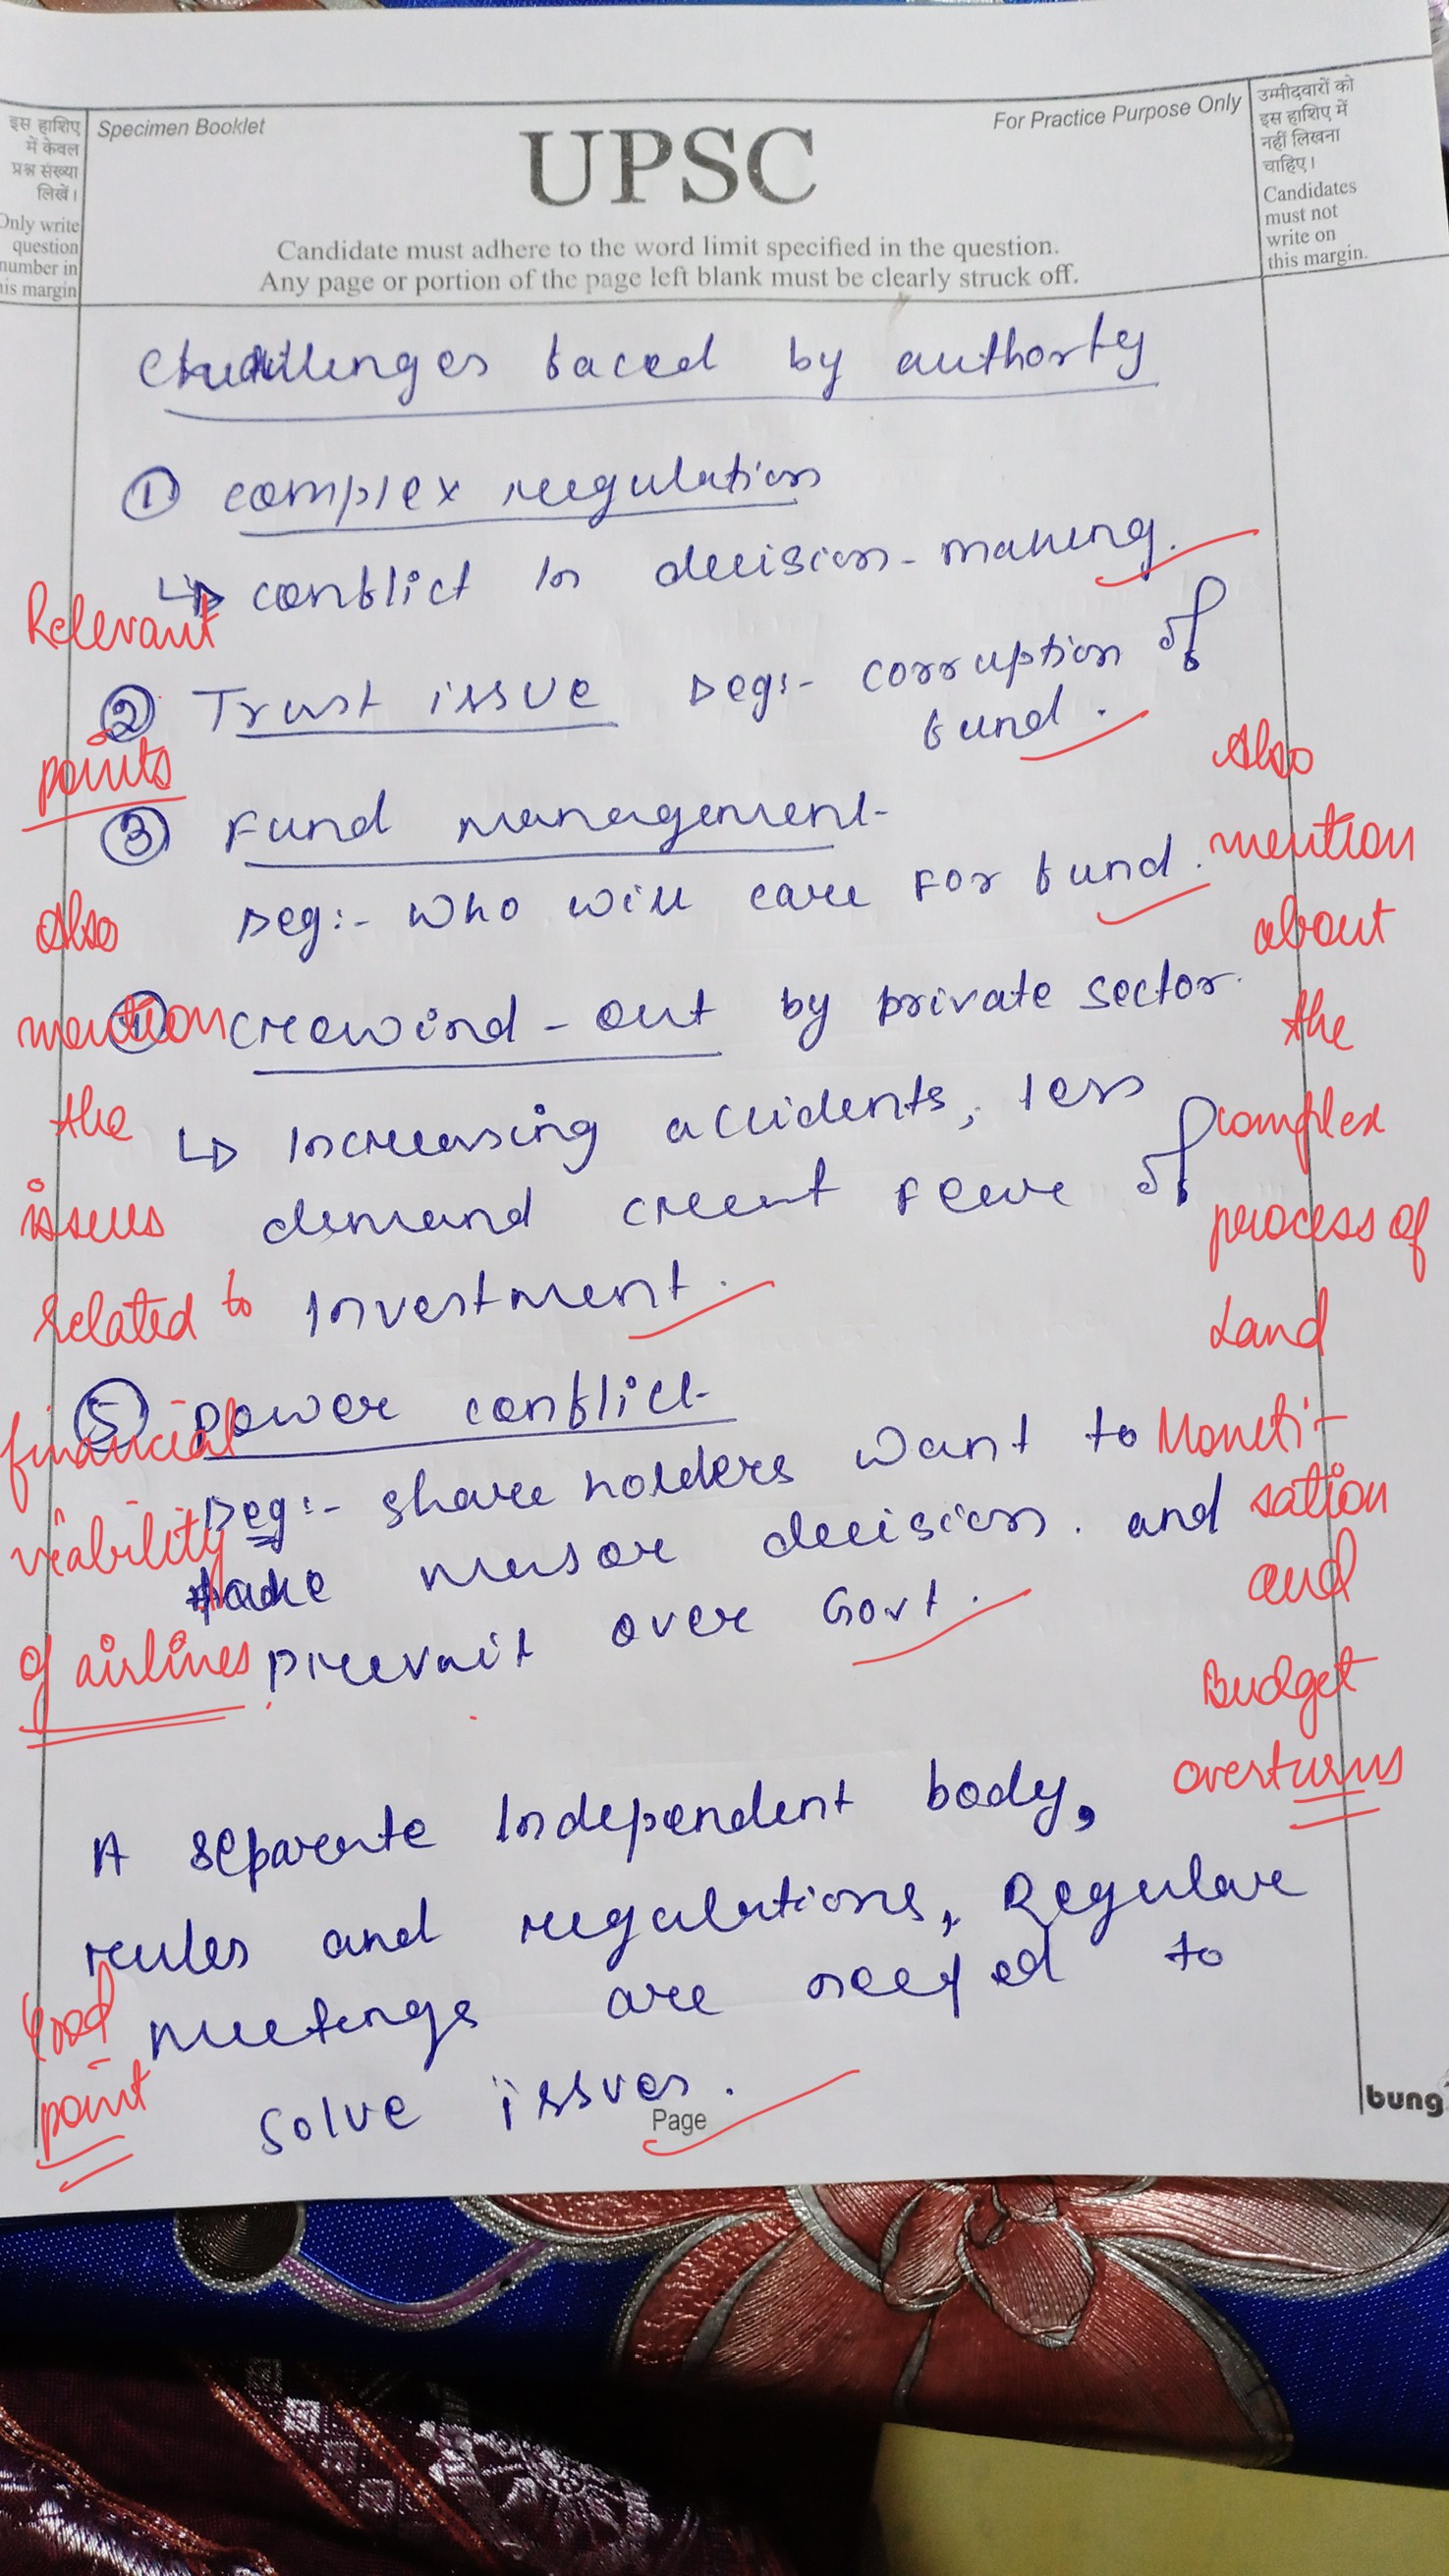 इस हाशिए
में केवल
प्रश्न संख्या
लिखें।
Only write
question
number in
his margin
Specimen Booklet
UPSC
For Practice Purpose Only
Candidate must adhere to the word limit specified in the question.
Any page or portion of the page left blank must be clearly struck off.
उम्मीदवारों को
इस हाशिए में
नहीं लिखना
चाहिए।
Candidates
must not
write on
this margin.
Challenges faced by authority
① complex regulation
↳ conflict in decision-making.
② Trust issue eg:- corruption of
fund.
③ Fund management
eg:- Who will care for fund.
④ crowind-out by private sector.
↳ Increasing accidents, less
demand creat feare of
Investment.
⑤ power conflict
eg:- share holders want to
take major decision. and
prevail over Govt.
A separate Independent body,
rules and regulations, Regular
meetings are needed to
solve issues.
Relevant
points
Also
mention
the
issues
related to
financial
viability
of airlines
Good
point
Also
mention
about
the
complex
process of
Land
Moneti-
sation
and
Budget
overturns
Page
bung